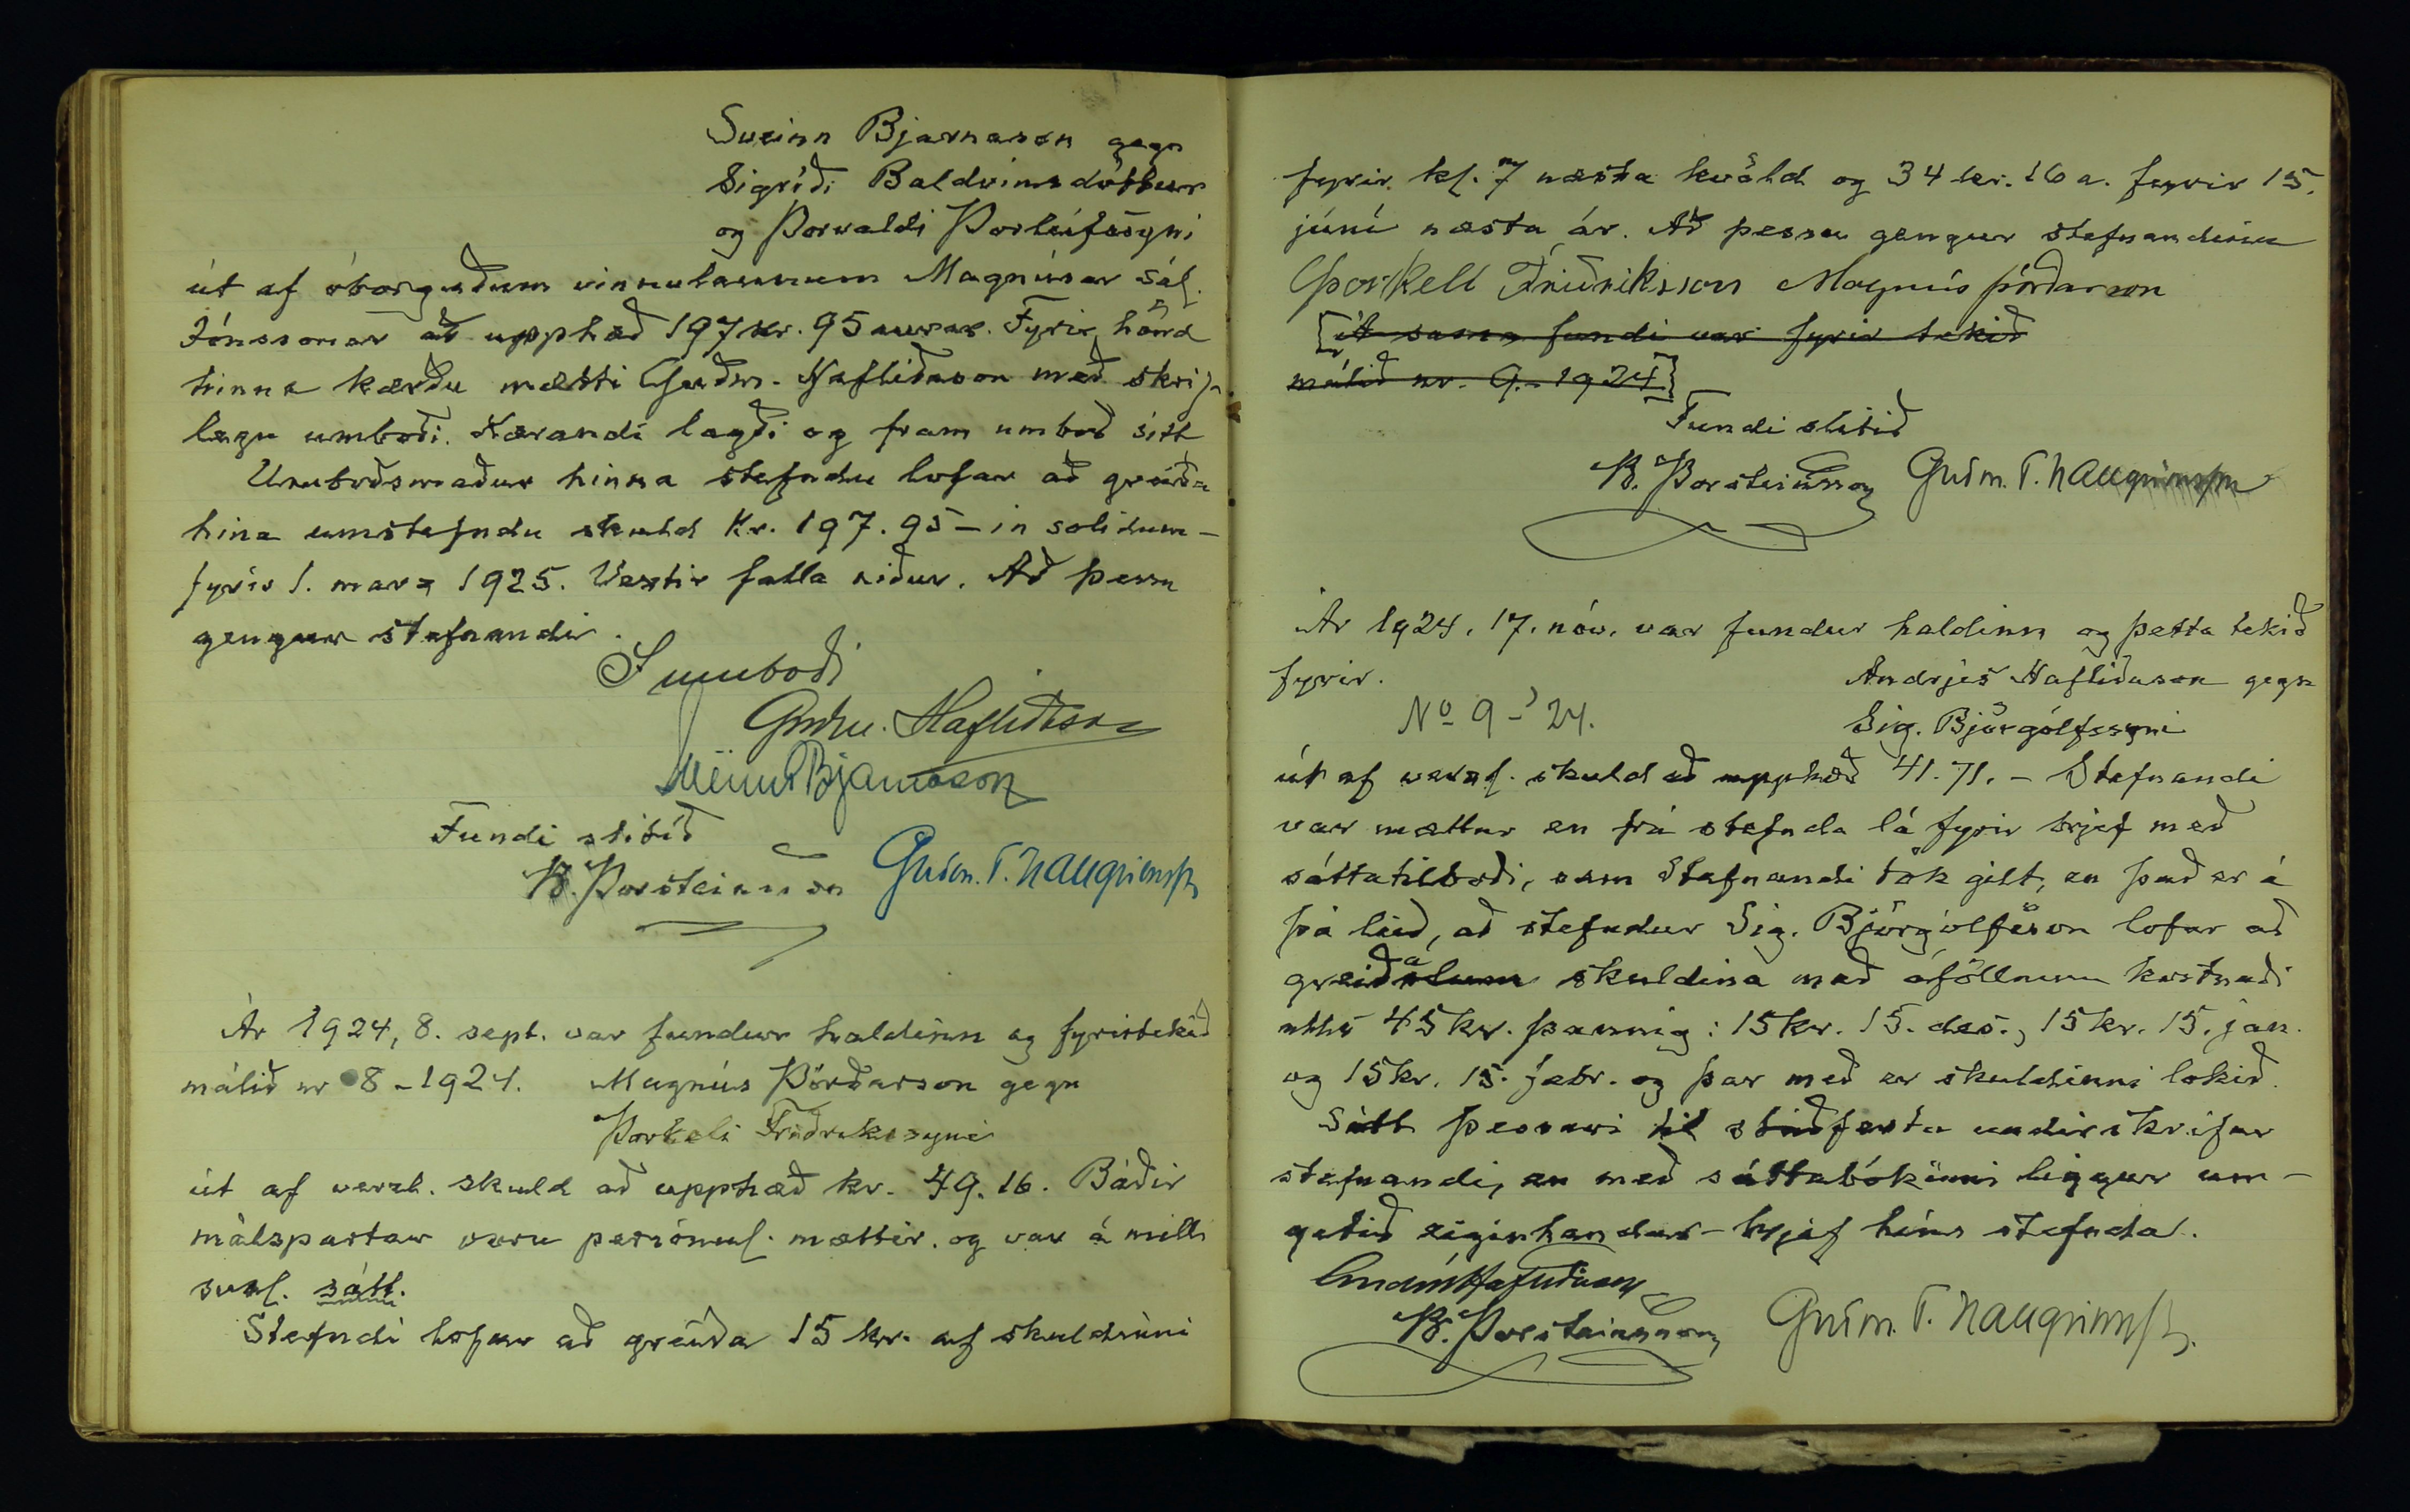 Sveinn Bjarnason gegn
Sigríði Baldvinsdóttur
og Þorvaldi Þorleifssyni
út af óborguðum vinnulaunum Magnúsar sál.
Jónssonar að upphæð 197 kr. 95 aurar. Fyrir hönd
hinna kærðu mætti Guðm. Hafliðason með skrif-
legu umboði. Kærandi lagði og fram umboð sitt
Umboðsmaður hinna stefndu lofar að greiða
hina umstefndu skuld Kr. 197.95 - in solidum -
fyrir 1. marz 1925. Vextir falla niður. Að þessu
gengur stefnandi.
Í umboði
Guðm. Hafliðason
Sveinn Bjarnason
Fundi slitið
B. Þorsteinsson Guðm. T. Hallgrímsson
Ár 1924, 8. sept. var fundur haldinn og fyrirtekið
málið nr 8 - 1924. Magnús Þórðarson gegn
Þorkeli Friðrikssyni
út af verzl. skuld að upphæð kr. 49.16. Báðir
málspartar voru persónul. mættir. og var á milli
svof. sátt.
Stefndi lofar að greiða 15 kr. af skuldinni
fyrir kl. 7 næsta kvöld og 34 kr. 16 a. fyrir 15.
júní næsta ár. Að þessu gengur stefnandinn
Þorkell Friðriksson Magnús Þórðarson
[Á sama fundi var fyrir tekið
málið nr. 9.- 1924]
Fundi slitið
B. Þorsteinsson Guðm. T. Hallgrímsson
Ár 1924, 17. nóv. var fundur haldinn og þetta tekið
fyrir. Andrjes Hafliðason gegn
No 9 - '24. Sig. Björgólfssyni
út af verzl. skuld að upphæð 41.71. - Stefnandi
var mættur en frá stefnda lá fyrir brjef með
sáttatilboði, sem stefnandi tók gilt, en það er á
þá leið, að stefndur Sig. Björgólfsson lofar að
greiða skuldina með áföllnum kostnaði
alls 45 kr. þannig: 15 kr. 15. des., 15 kr. 15. jan.
og 15 kr. 15. febr. og þar með er skuldinni lokið.
Sátt þessari til staðfestu undirskrifar
stefnandi, en með sáttabókinni liggur um-
getið eiginhandar-brjef hins stefnda.
Andrés Hafliðason
B. Þorsteinsson Guðm. T. Hallgrímsson